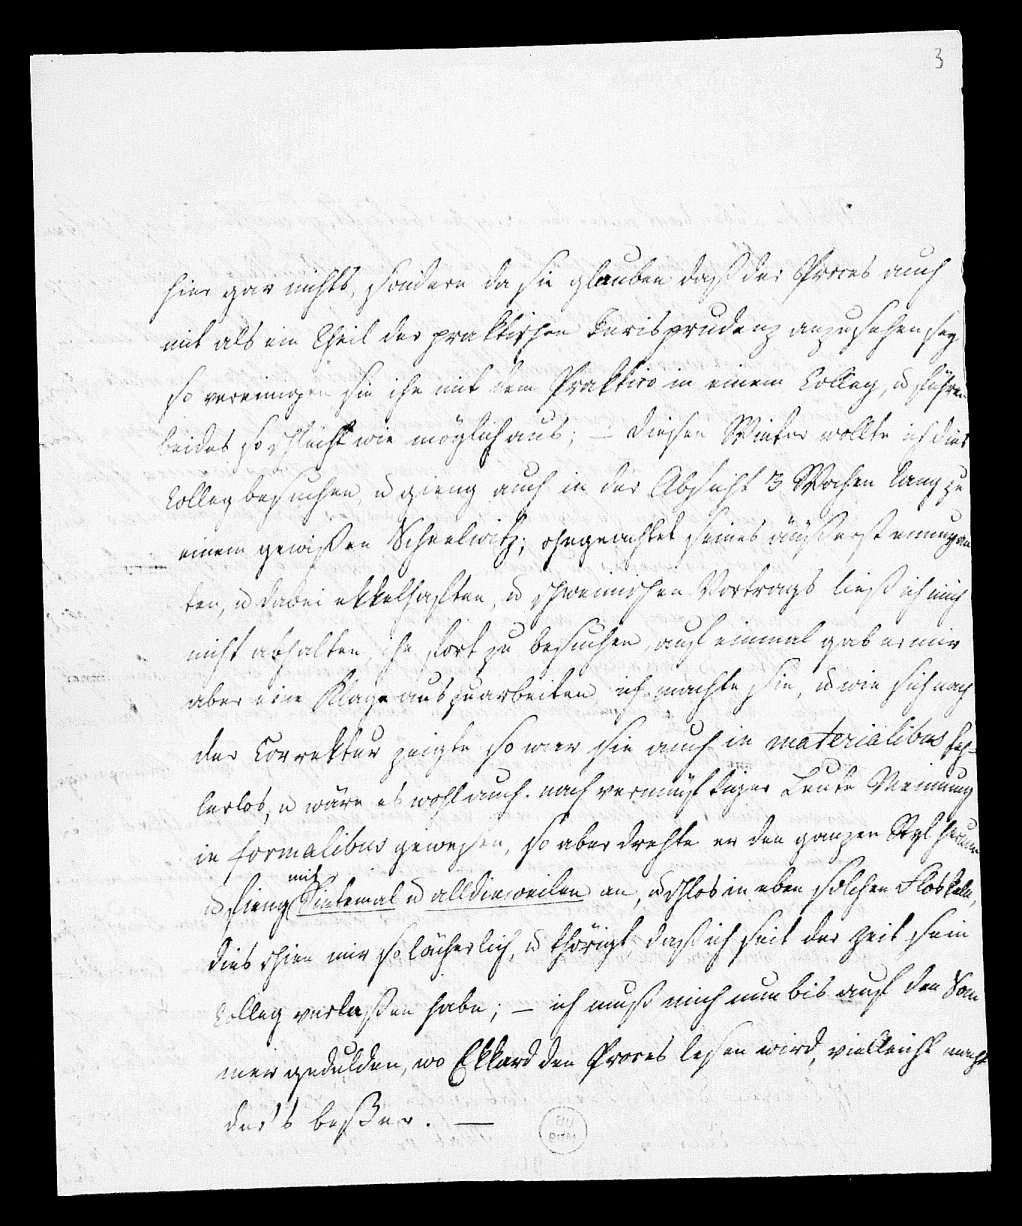 3
hier gar nichts, sondern da sie glauben daß der Proces auch
mit als ein Theil der praktischen Jurisprudenz anzusehen sey
so vereinigen sie ihn mit dem Praktico in einem Colleg, u führen
beides so schlecht wie möglich aus; – diesen Winter wollte ich dies
Colleg besuchen u gieng auch in der Absicht 3 Wochen lang zu
einem gewißen Scheelwitz; ohngeachtet seines äußerst ennuyan
ten, u dabei ekkelhaften, u schweinischen Vortrags ließ ich mich
nicht abhalten ihn fort zu besuchen, auf einmal gab er mir
aber eine Klage auszuarbeiten, ich machte sie, u wie sich nach
der Correktur zeigte so war sie auch in materialibus feh-
lerlos, u wäre es wohl auch nach vernünftiger Leute Meinung
in formalibus gewesen, so aber drehte er den ganzen Styl herum
u fieng mit Sintemal u alldieweilen an, u schlos in eben solchen Floskeln,
dies schien mir so lächerlich, u thörigt daß ich seit der Zeit sein
Colleg verlaßen habe; – ich muß mich nun bis auf den Som
mer gedulden, wo Ekkard den Proces lesen wird, vielleicht macht
der's beßer. –